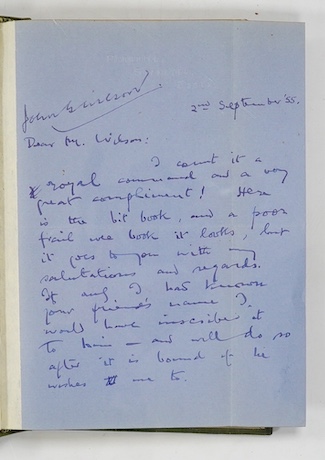 John G. Wilson
2nd September '55.
Dear Mr. Wilson:
I count it a
royal command and a very
great compliment! Here
is the bit book, and a poor
frail wee book it looks, but
it goes to you with my
salutations and regards.
If only I had known
your friend's name I
would have inscribed it
to him — and will do so
after it is bound if he
wishes me to.